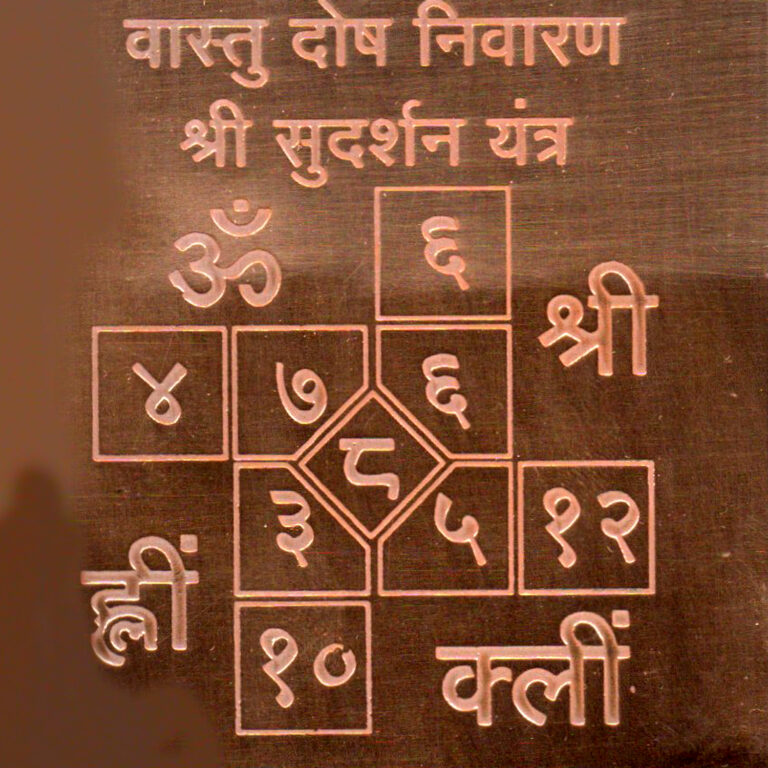 वास्तु दोष निवारण
श्री सुदर्शन यंत्र
ॐ ६
श्री
४ ७ ६
८
३ ५ १२
ह्रीं
१० क्लीं